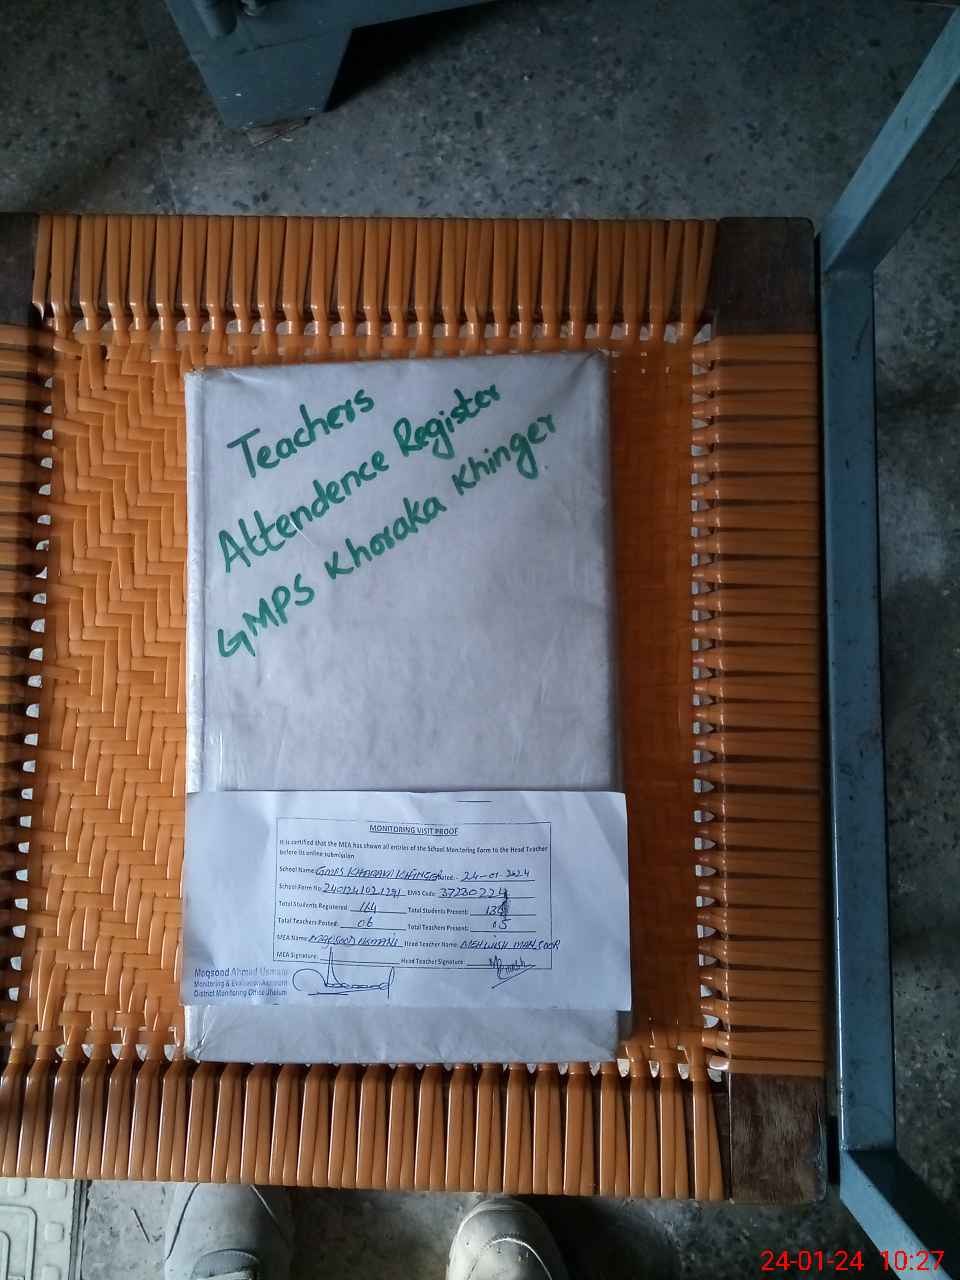 Teachers
Attendence Register
GMPS Khoraka Khinger
MONITORING VISIT PROOF
It is certified that the MEA has shown all entries of the School Monitoring Form to the Head Teacher
before its online submission
School Name: GMPS KHORAKA KHINGER Dated: 24-01-2024
School Form No: EMIS Code:
Total Students Registered: 164 Total Students Present:
Total Teachers Posted: 06 Total Teachers Present: 05
MEA Name: MAQSOOD USMANI Head Teacher Name: MEHWISH MANSOOR
MEA Signature: Head Teacher Signature:
Maqsood Ahmad Usmani
Monitoring & Evaluation Assistant
District Monitoring Office Jhelum
24-01-24 10:27